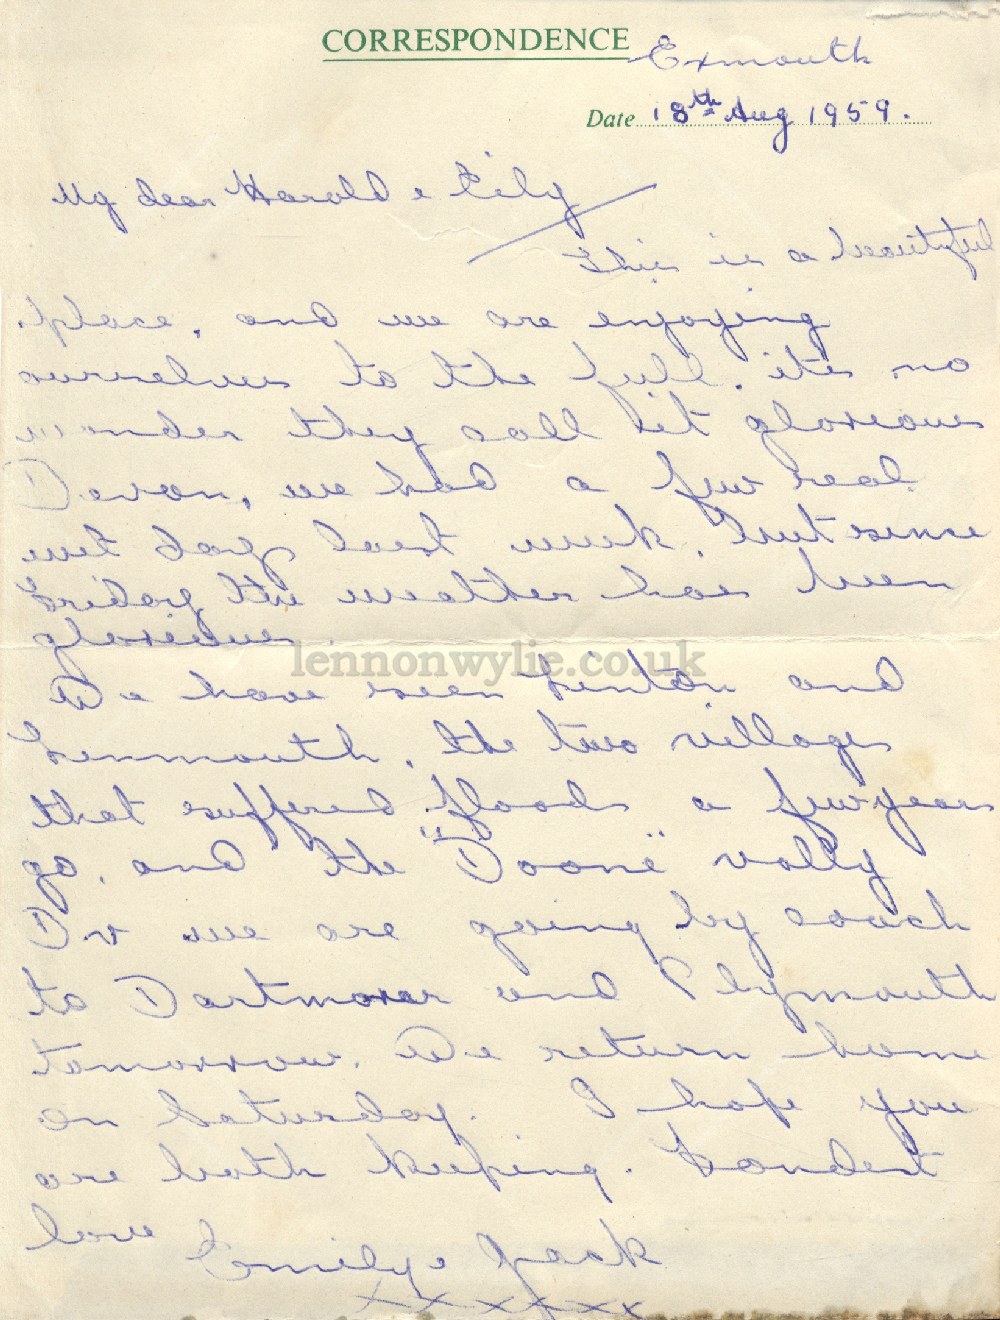 CORRESPONDENCE
Exmouth
Date 18th Aug 1959.
My dear Harold & Eily
This is a beautiful
place, and we are enjoying
ourselves to the full. its no
wonder they call it glorious
Devon, we had a few real
wet days last week, but since
Friday the weather has been
glorious.
lennonwylie.co.uk
We have seen Linton and
Linmouth, the two villages
that suffered floods a few years
go, and the "Doone" vally
D.v we are going by coach
to Dartmoor and Plymouth
tomorrow. We return home
on Saturday. I hope you
are both keeping. Fondest
love Emily & Jack
xxxxxx